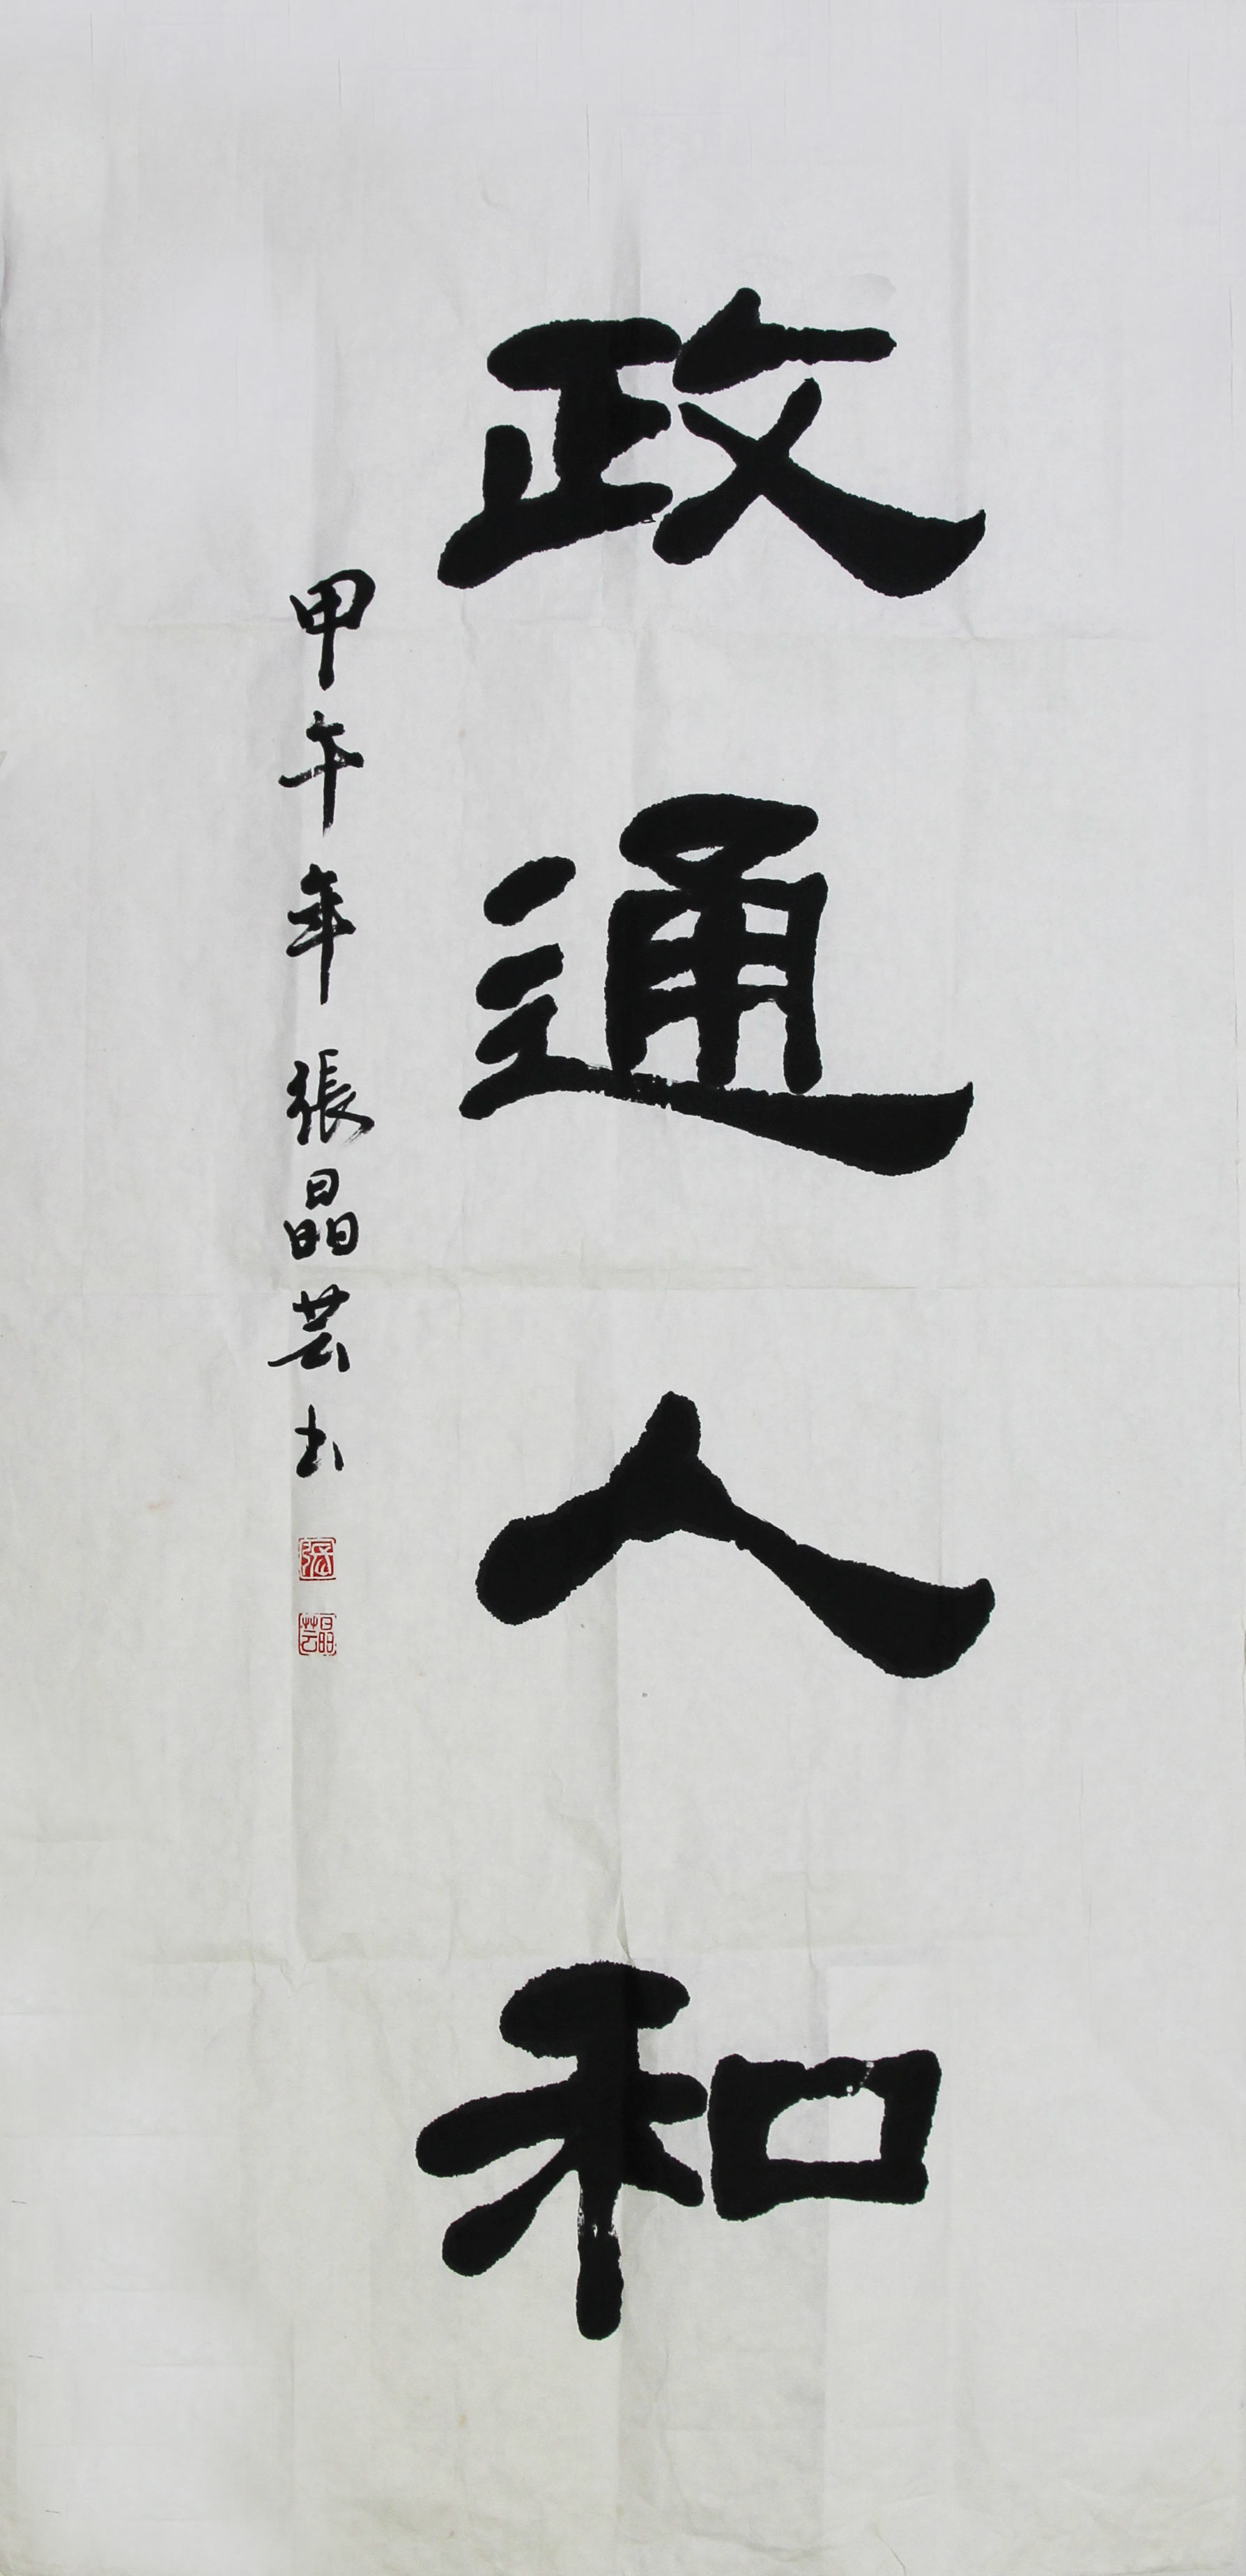 政通人和
甲午年 張晶芸书
張
晶芸